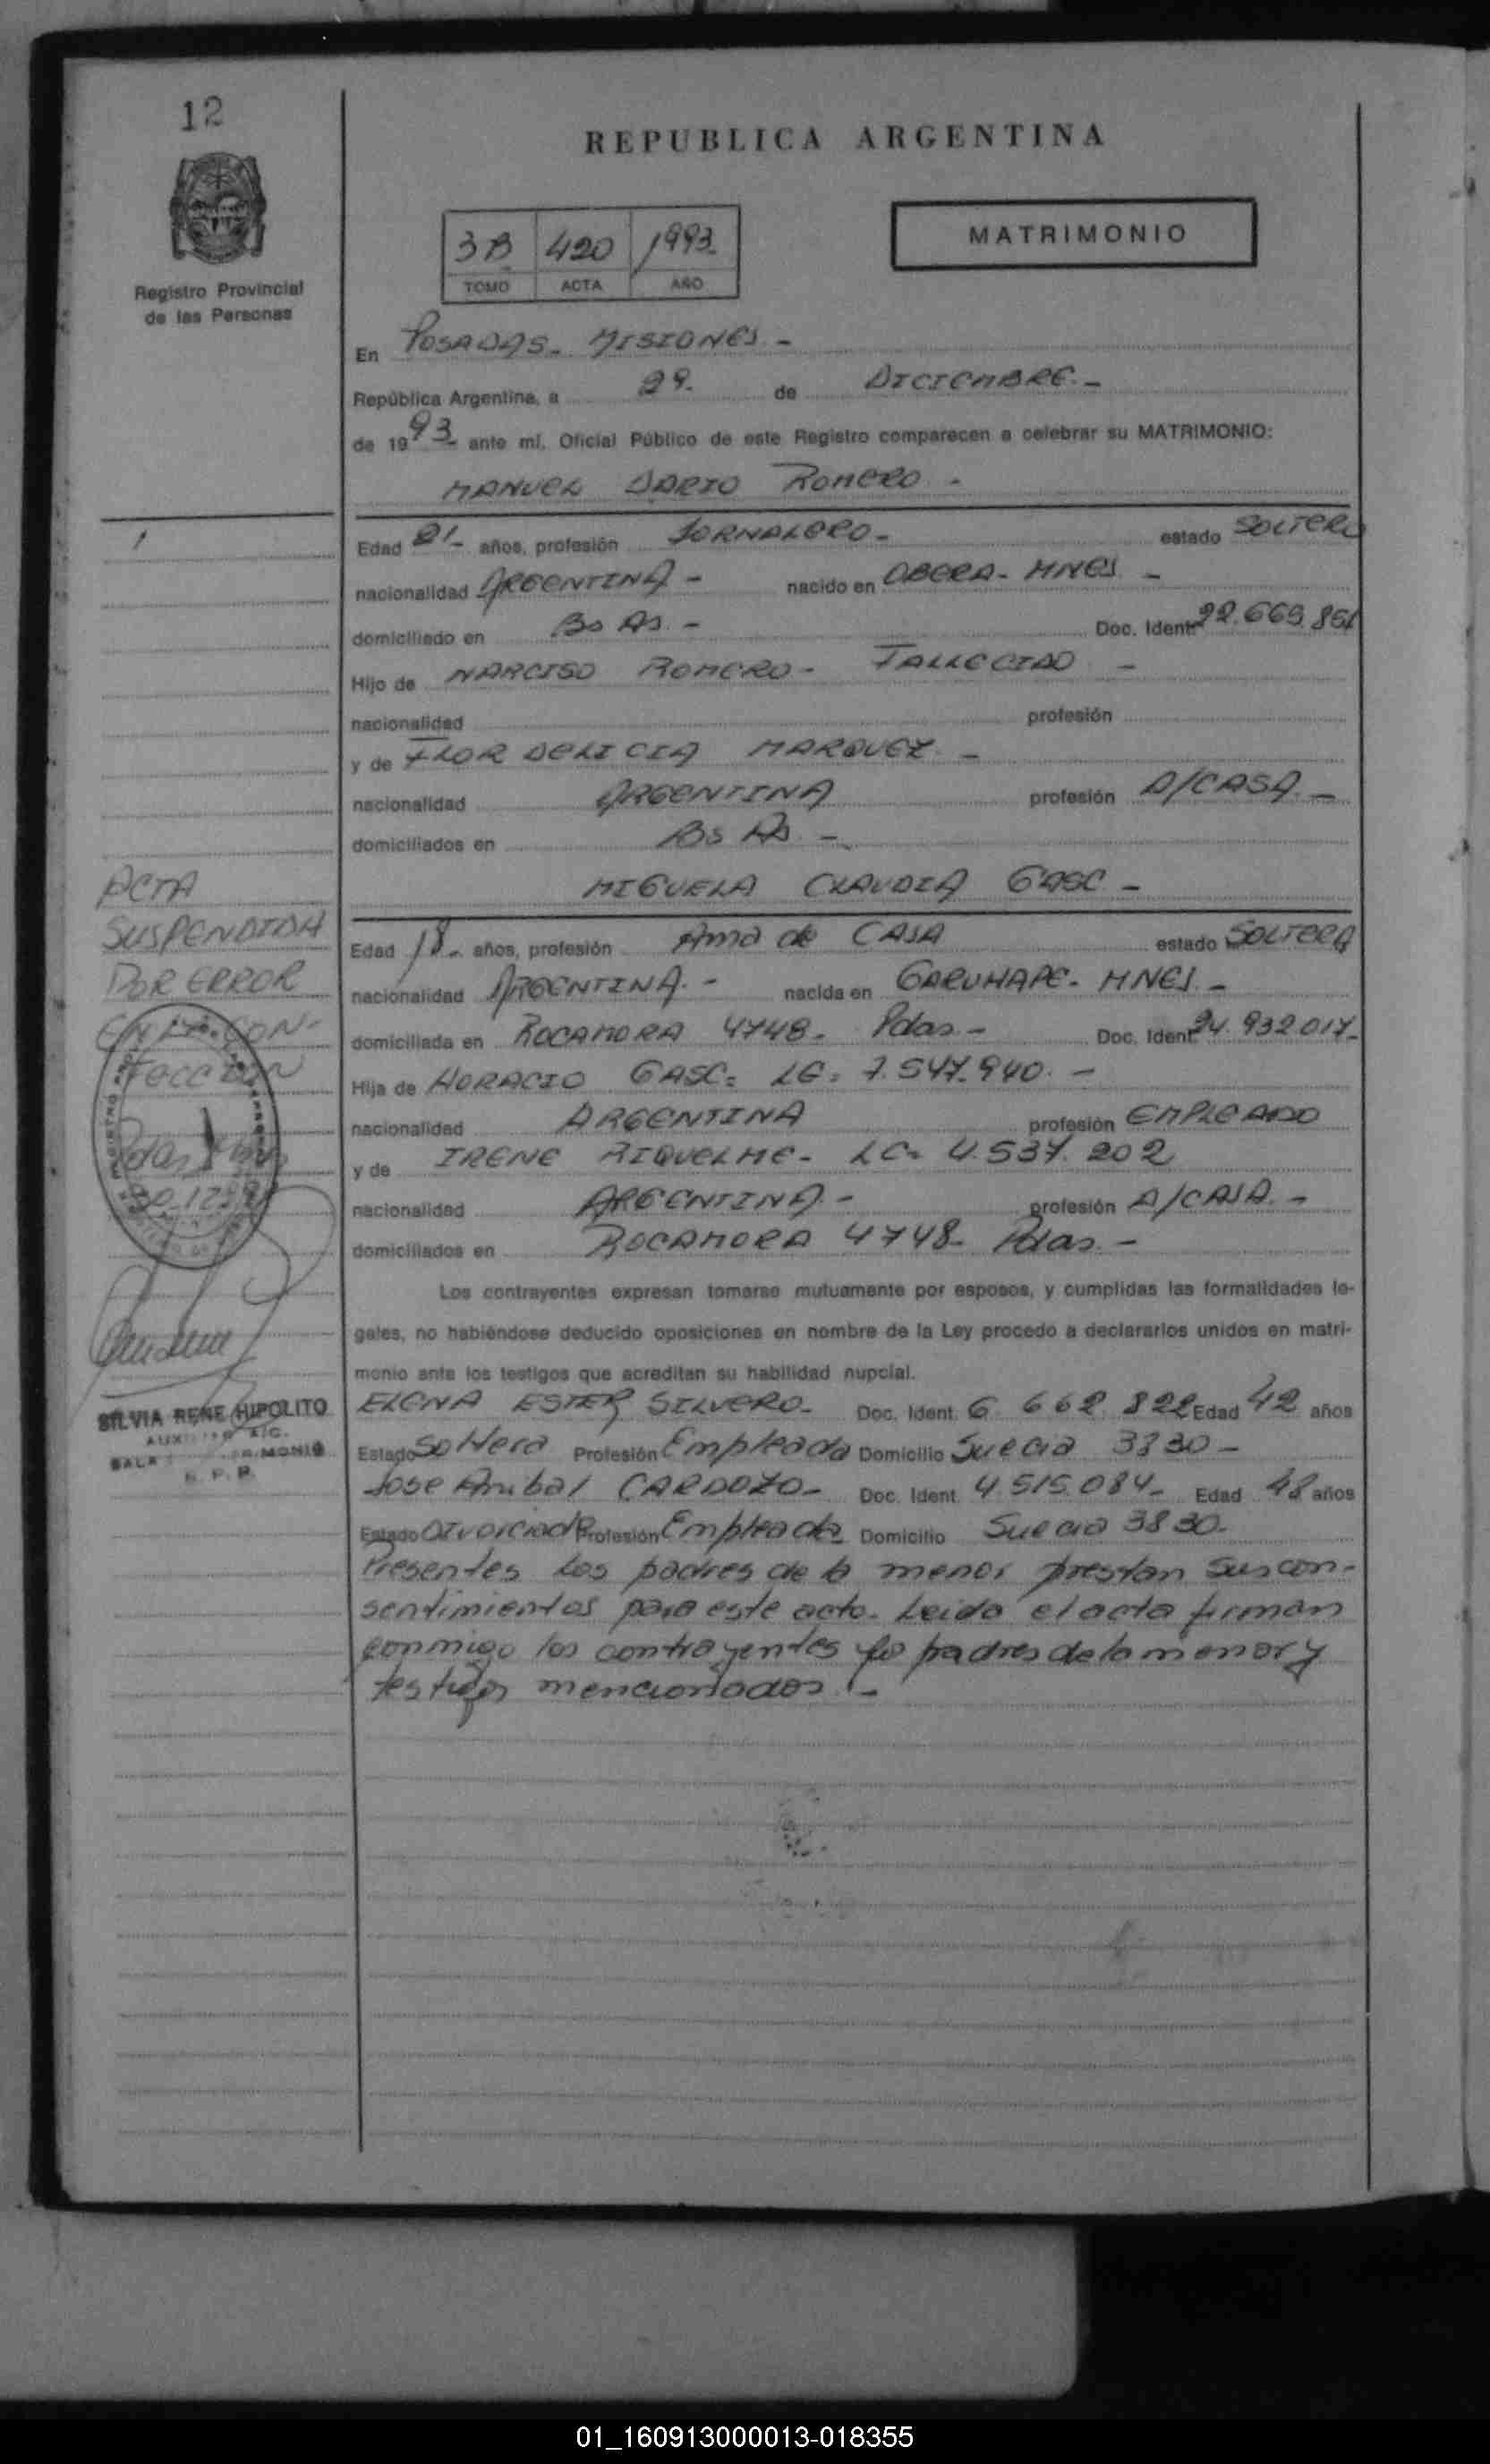 12
REPUBLICA ARGENTINA
MATRIMONIO
3B 420 1993
TOMO ACTA AÑO
Registro Provincial
de las Personas
En POSADAS - MISIONES -
República Argentina, a 29 de DICIEMBRE -
de 1993 - ante mí, Oficial Público de este Registro comparecen a celebrar su MATRIMONIO:
MANUEL DARIO ROMERO -
Edad 21 - años, profesión JORNALERO - estado SOLTERO
nacionalidad ARGENTINA - nacido en OBERA - MNES -
domiciliado en Bs As - Doc. Ident. 22.669.861
Hijo de NARCISO ROMERO - FALLECIDO -
nacionalidad profesión
y de FLOR DELICIA MARQUEZ -
nacionalidad ARGENTINA profesión A/CASA. -
domiciliados en Bs As -
MIGUELA CLAUDIA GASC -
Edad 18 - años, profesión Ama de CASA estado SOLTERA
nacionalidad ARGENTINA. - nacida en GARUHAPE - MNES. -
domiciliada en ROCAMORA 4748 - Pdas - Doc. Ident. 24.932.017 -
Hija de HORACIO GASC - LE - 7.547.940 -
nacionalidad ARGENTINA profesión EMPLEADO
y de IRENE RIQUELME - LC - 4.537.202
nacionalidad ARGENTINA - profesión A/CASA. -
domiciliados en ROCAMORA 4748 - Pdas -
Los contrayentes expresan tomarse mutuamente por esposos, y cumplidas las formalidades le-
gales, no habiéndose deducido oposiciones en nombre de la Ley procedo a declararlos unidos en matri-
monio ante los testigos que acreditan su habilidad nupcial.
ELENA ESTER SILVERO - Doc. Ident. 6.662.822 Edad 42 años
Estado Soltera Profesión Empleada Domicilio Suecia 3830 -
Jose Anibal CARDOZO - Doc. Ident. 4.515.084 - Edad 48 años
Estado Divorciado Profesión Empleado Domicilio Suecia 3830 -
Presentes los padres de la menor prestan sus con-
sentimientos para este acto - Leida el acta firman
conmigo los contrayentes los padres de la menor y
testigos mencionados -
1
ACTA
SUSPENDIDA
POR ERROR
EN LA CON-
FECCION
Pdas
SILVIA RENE HIPOLITO
AUXILIAR A/C.
SALA MATRIMONIO
R. P. P.
01_160913000013-018355